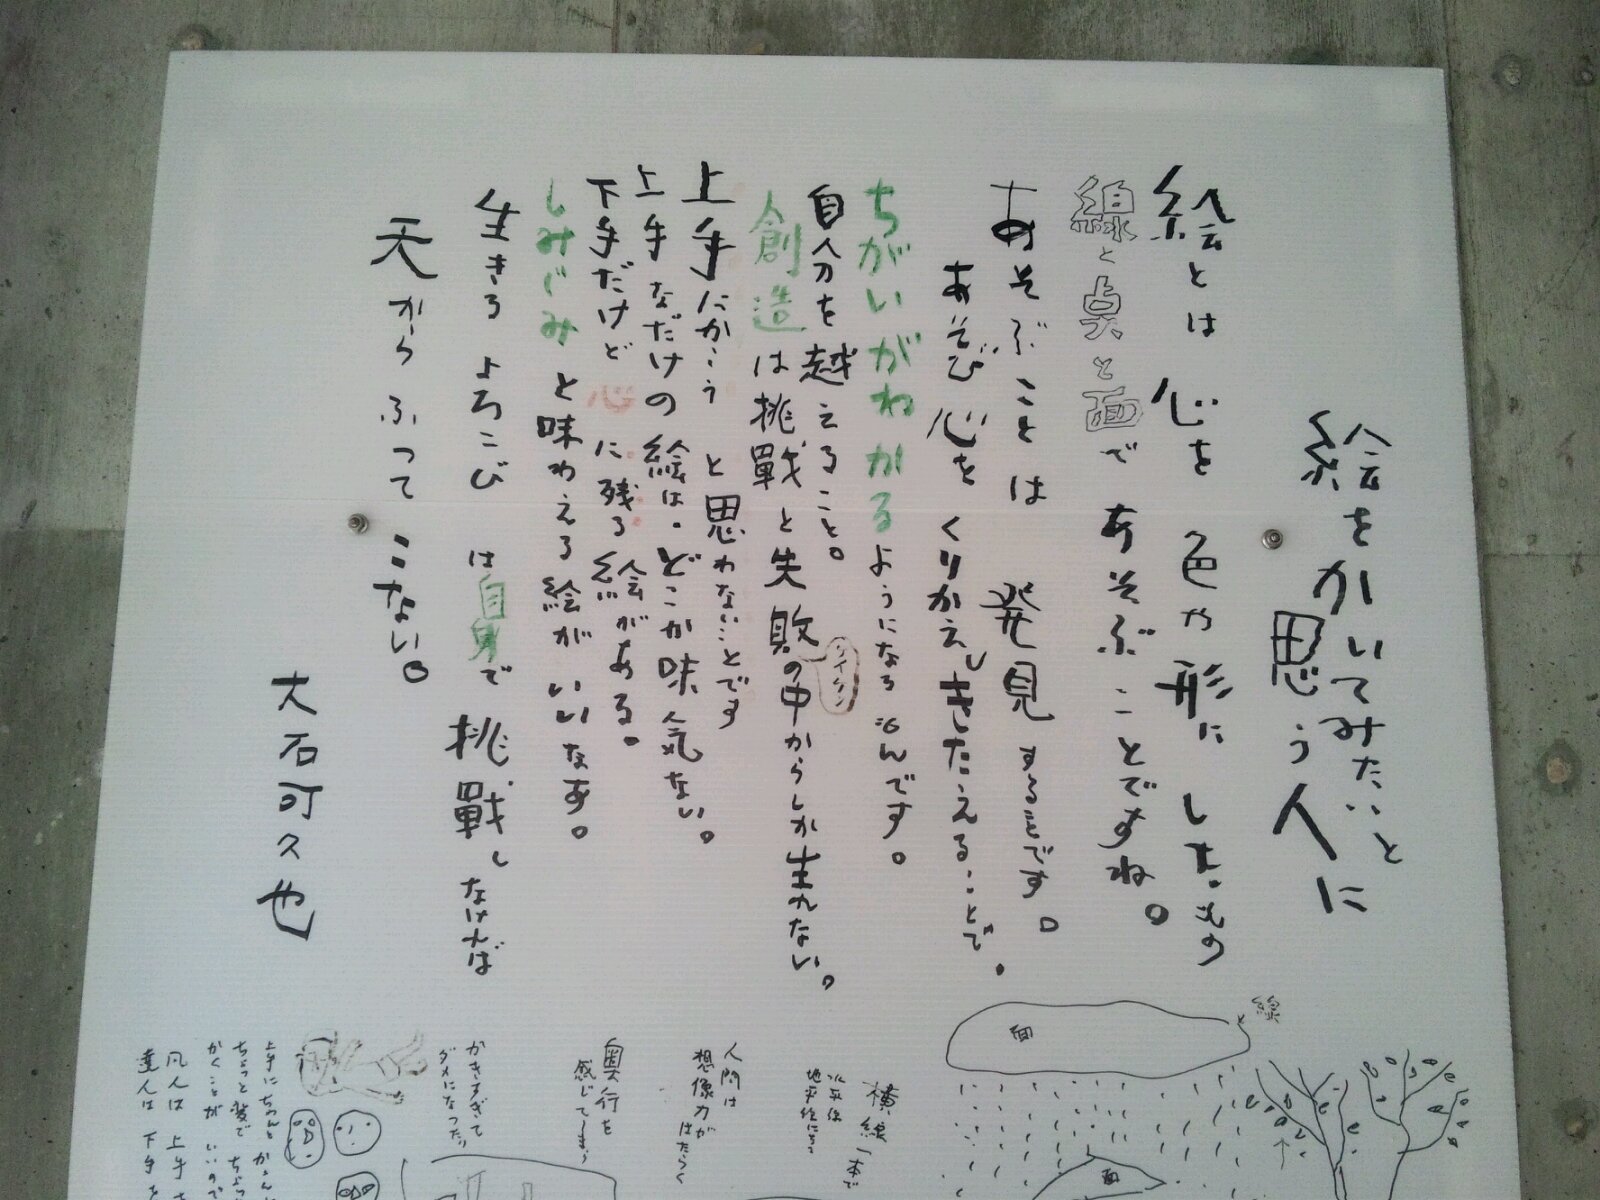 絵をかいてみたいと
思う人に
絵とは 心を 色や形に したもの
線と点と面で あそぶことですね。
あそぶことは 発見することです。
あそび心を くりかえしきたえることで。
ちがいがわかるようになるもんです。
自分を越えること。
創造は挑戦と失敗の中からしか生れない。
上手にかこうと思わないことです
上手なだけの絵は。どこか味気ない。
下手だけど 心に残る絵がある。
しみじみと味わえる絵が いいなあ。
生きる よろこび は自身で挑戦しなければ
天から ふって こない。
大石可久也
線
面
面
横線一本で
人間は
想像力が
はたらく
奥行を
感じてしまう
かきすぎて
ダメになったり
上手にちゃんと
ちょっと変で
かくことが いいので
凡人は 上手
達人は 下手